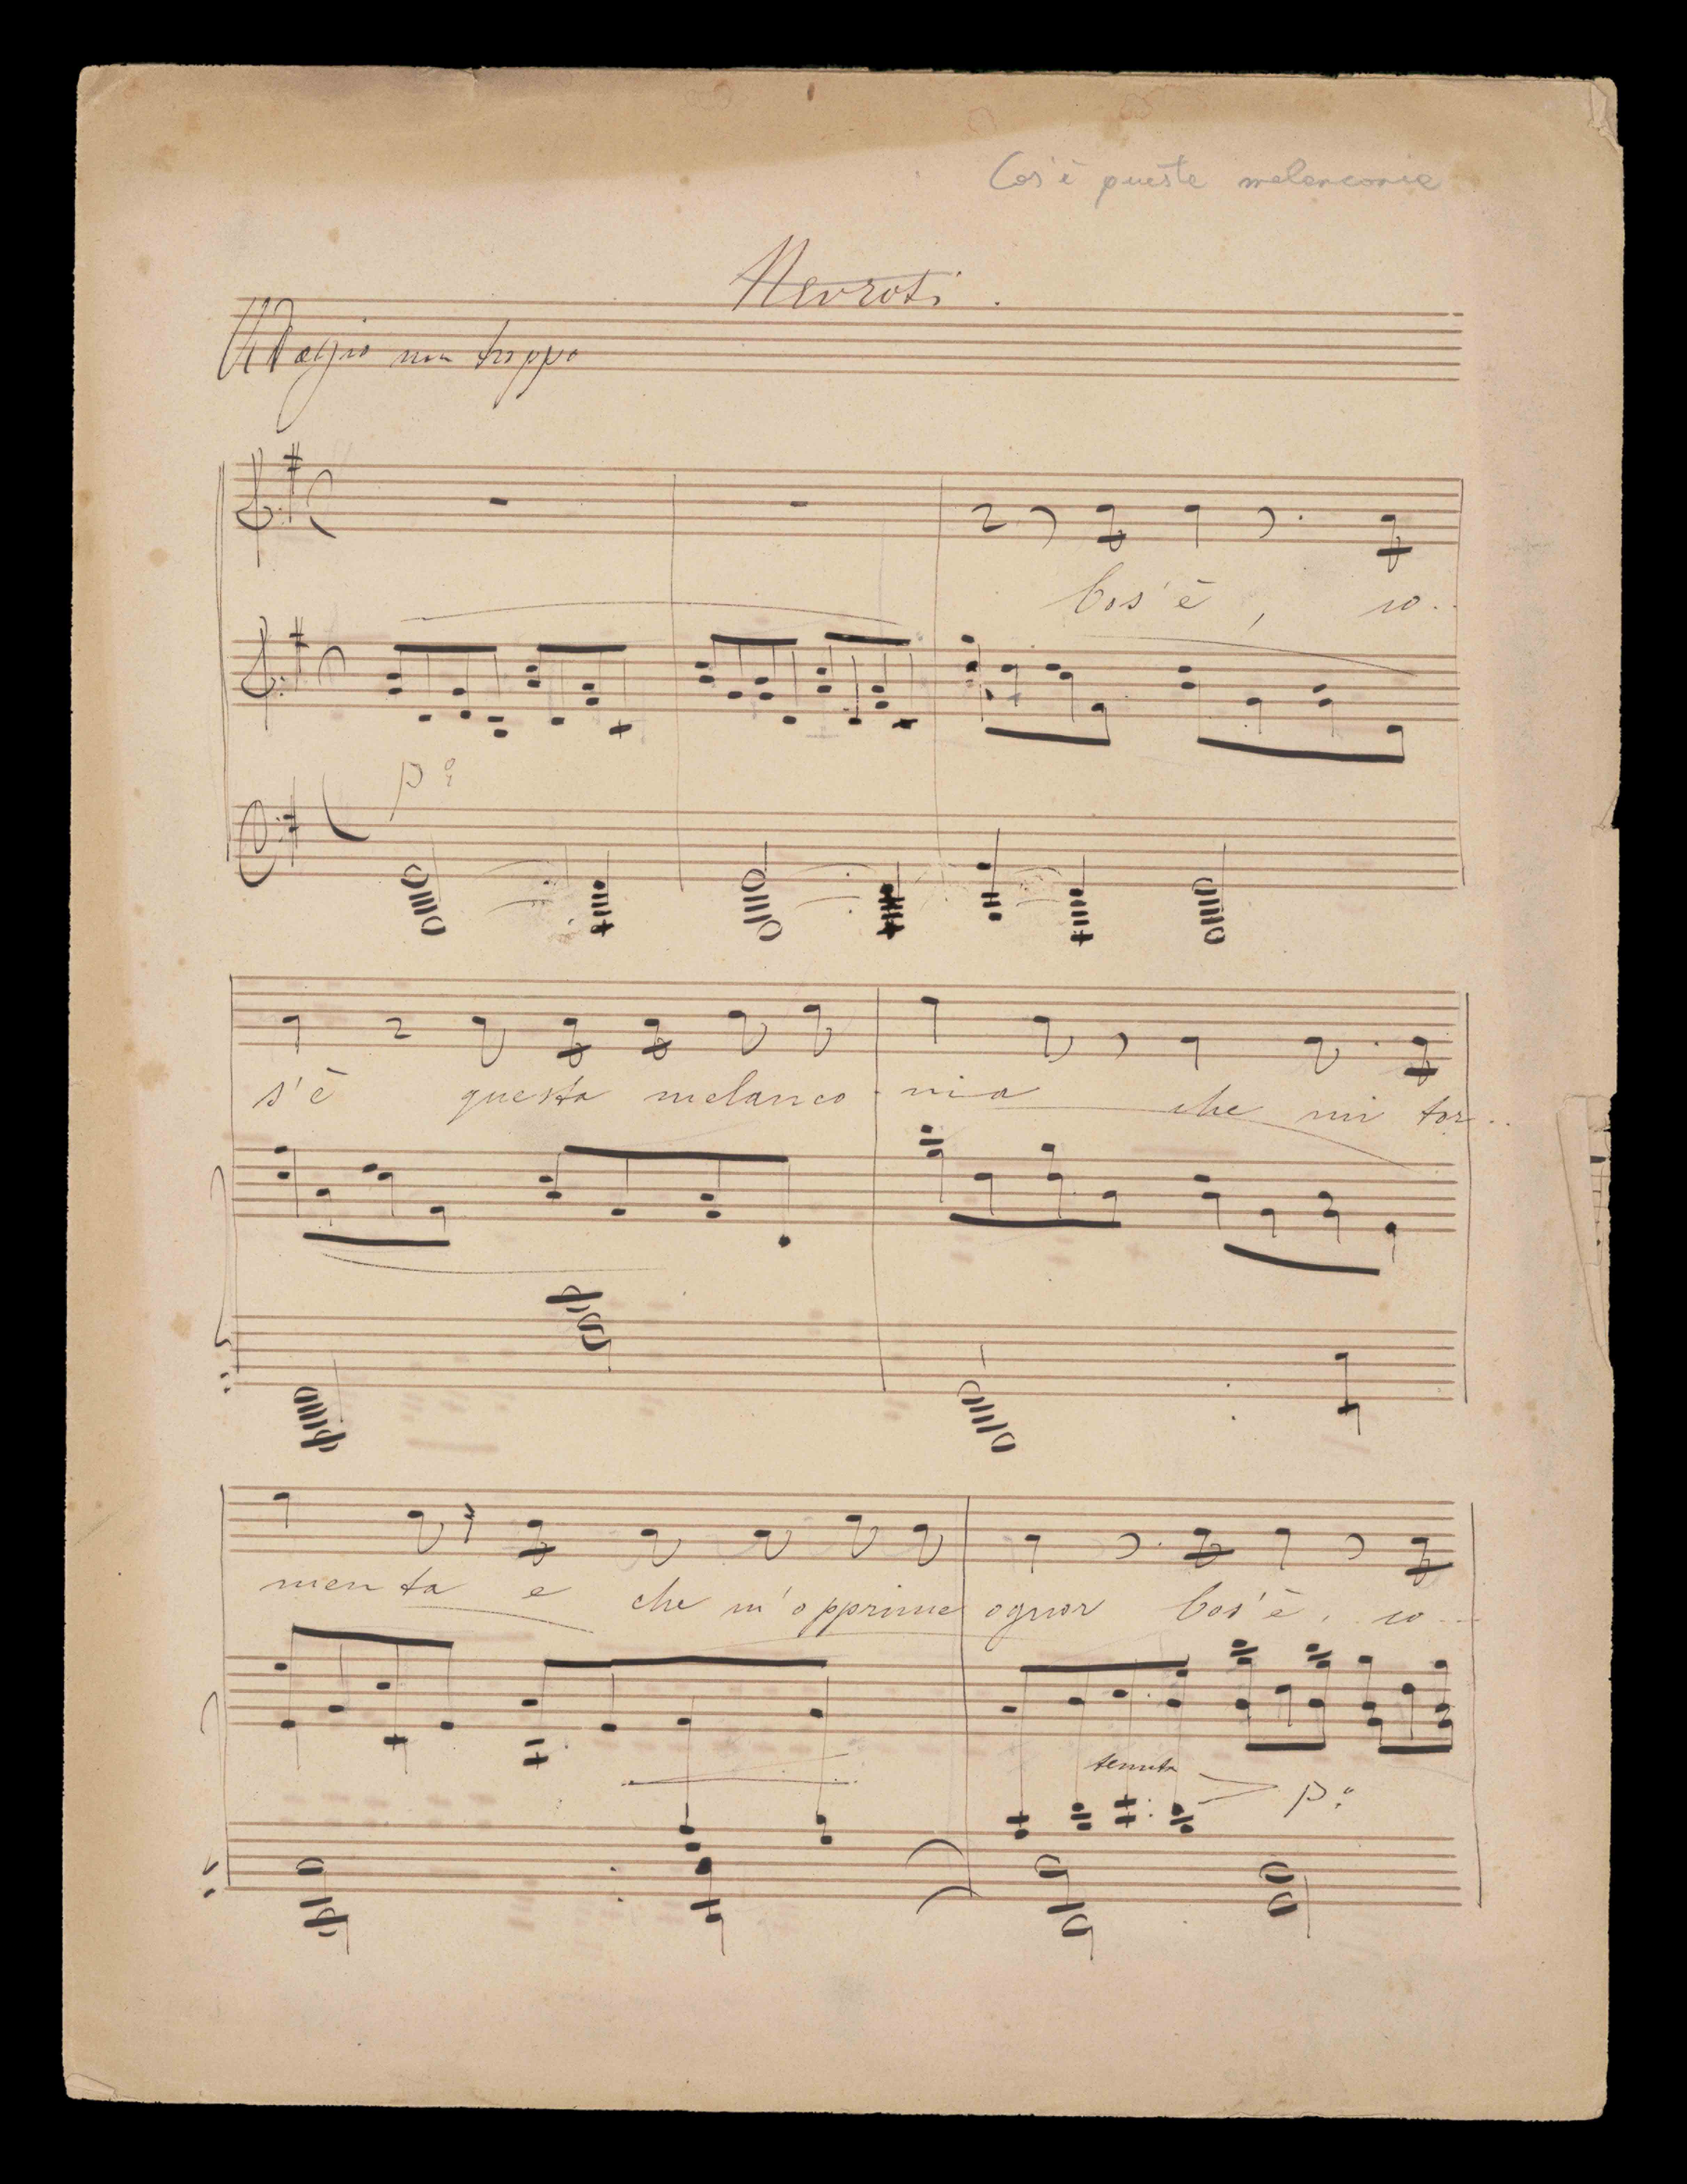 Cos'è queste melanconie
Nevroti.
Adagio non troppo
Cos'è, co..
p°
s'è questa melanco - nia che mi tor..
menta e che m'opprime ognor Cos'è, co...
tenuta
p°